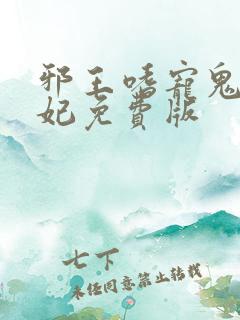 邪王嗜寵鬼
妃免費版
七下
未经同意禁止转载